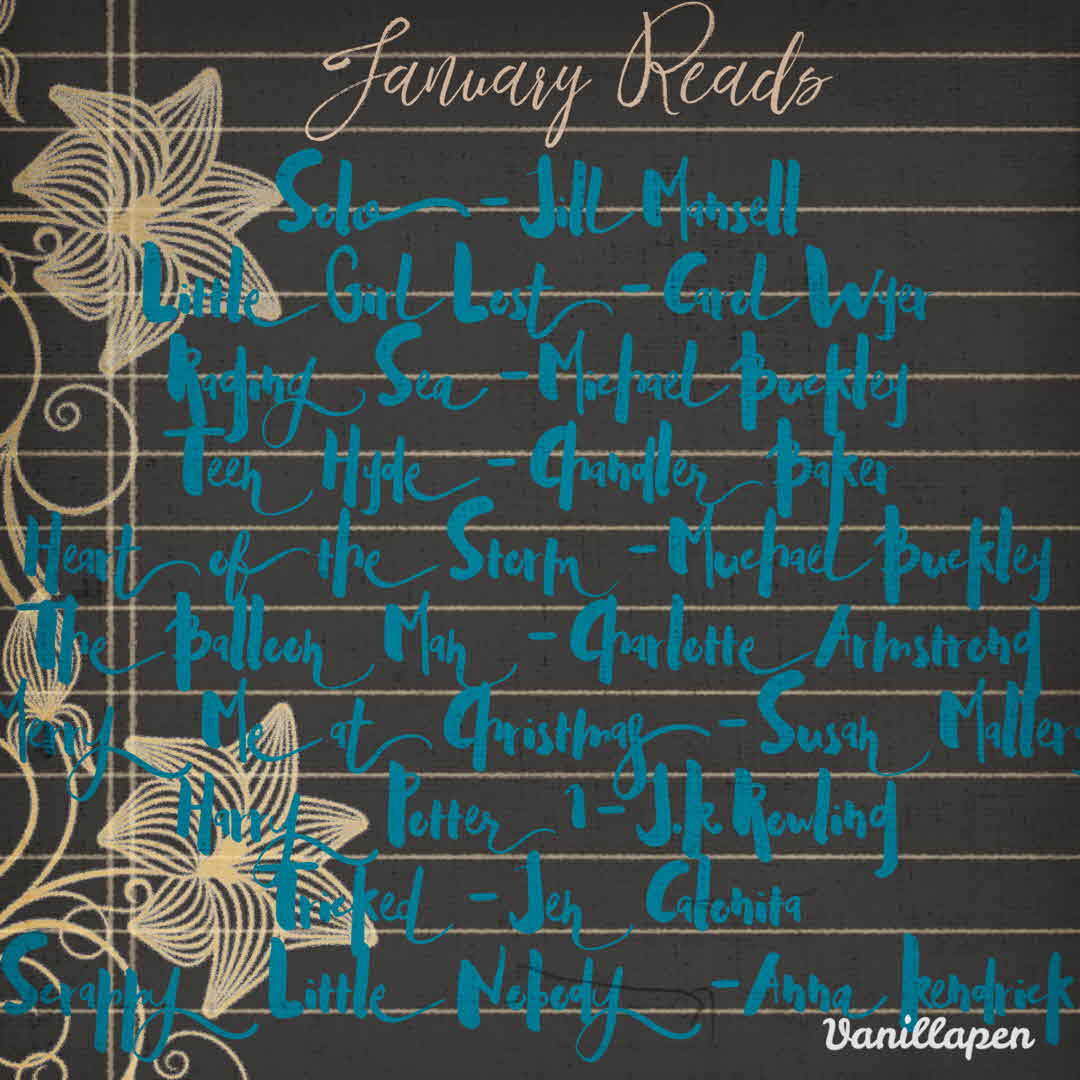 January Reads
Solo - Jill Mansell
Little Girl Lost - Carol Wyer
Raging Sea - Michael Buckley
Teen Hyde - Chandler Baker
Heart of the Storm - Muchael Buckley
The Balloon Man - Charlotte Armstrong
Merry Me at Christmas - Susan Mallery
Harry Potter 1 - J.K Rowling
Tricked - Jen Calonita
Scrappy Little Nobody - Anna Kendrick
Vanillapen